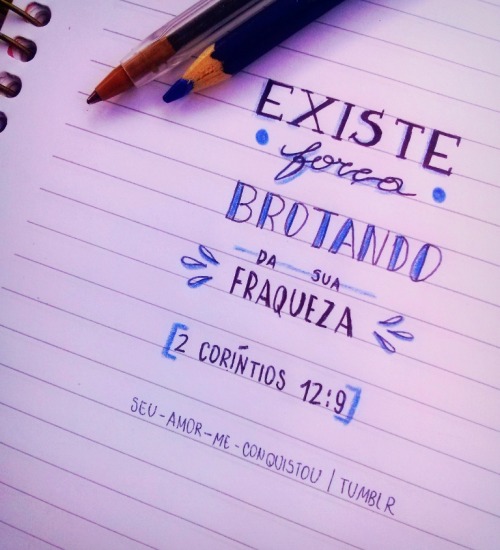 EXISTE
força
BROTANDO
DA SUA
FRAQUEZA
[2 CORÍNTIOS 12:9]
SEU-AMOR-ME-CONQUISTOU | TUMBLR